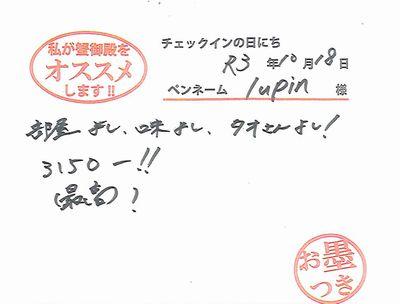 私が蟹御殿を
オススメ
します!!
チェックインの日にち
R3 年 10 月 18 日
ペンネーム lupin 様
部屋よし、味よし、タオルよし!
3150ー!!
(最高)!
お墨
つき